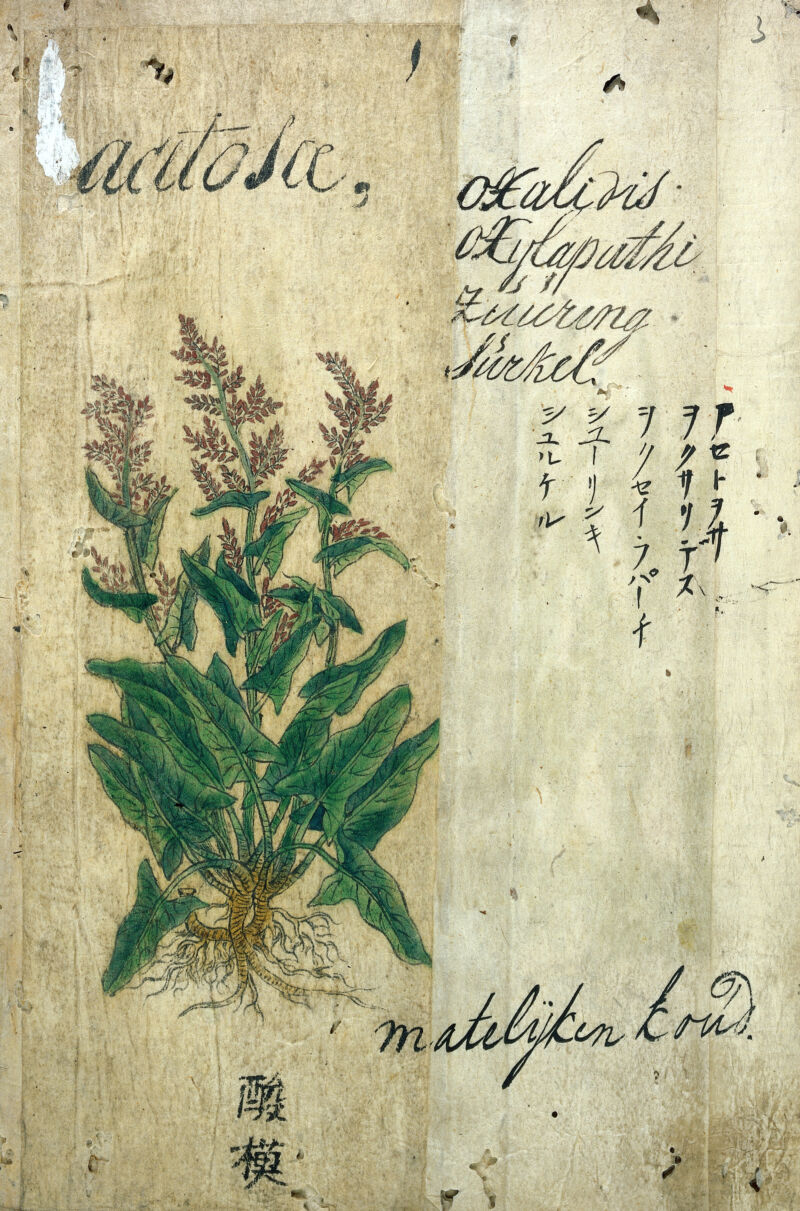 3
acetosæ,
oxalidis.
oxylapathi
züüring
sürkel.
アセトヲサ
ヲクサリデス
ヲクセイラパーチ
シユーリンキ
シユルケル
matelijken koud.
酸模